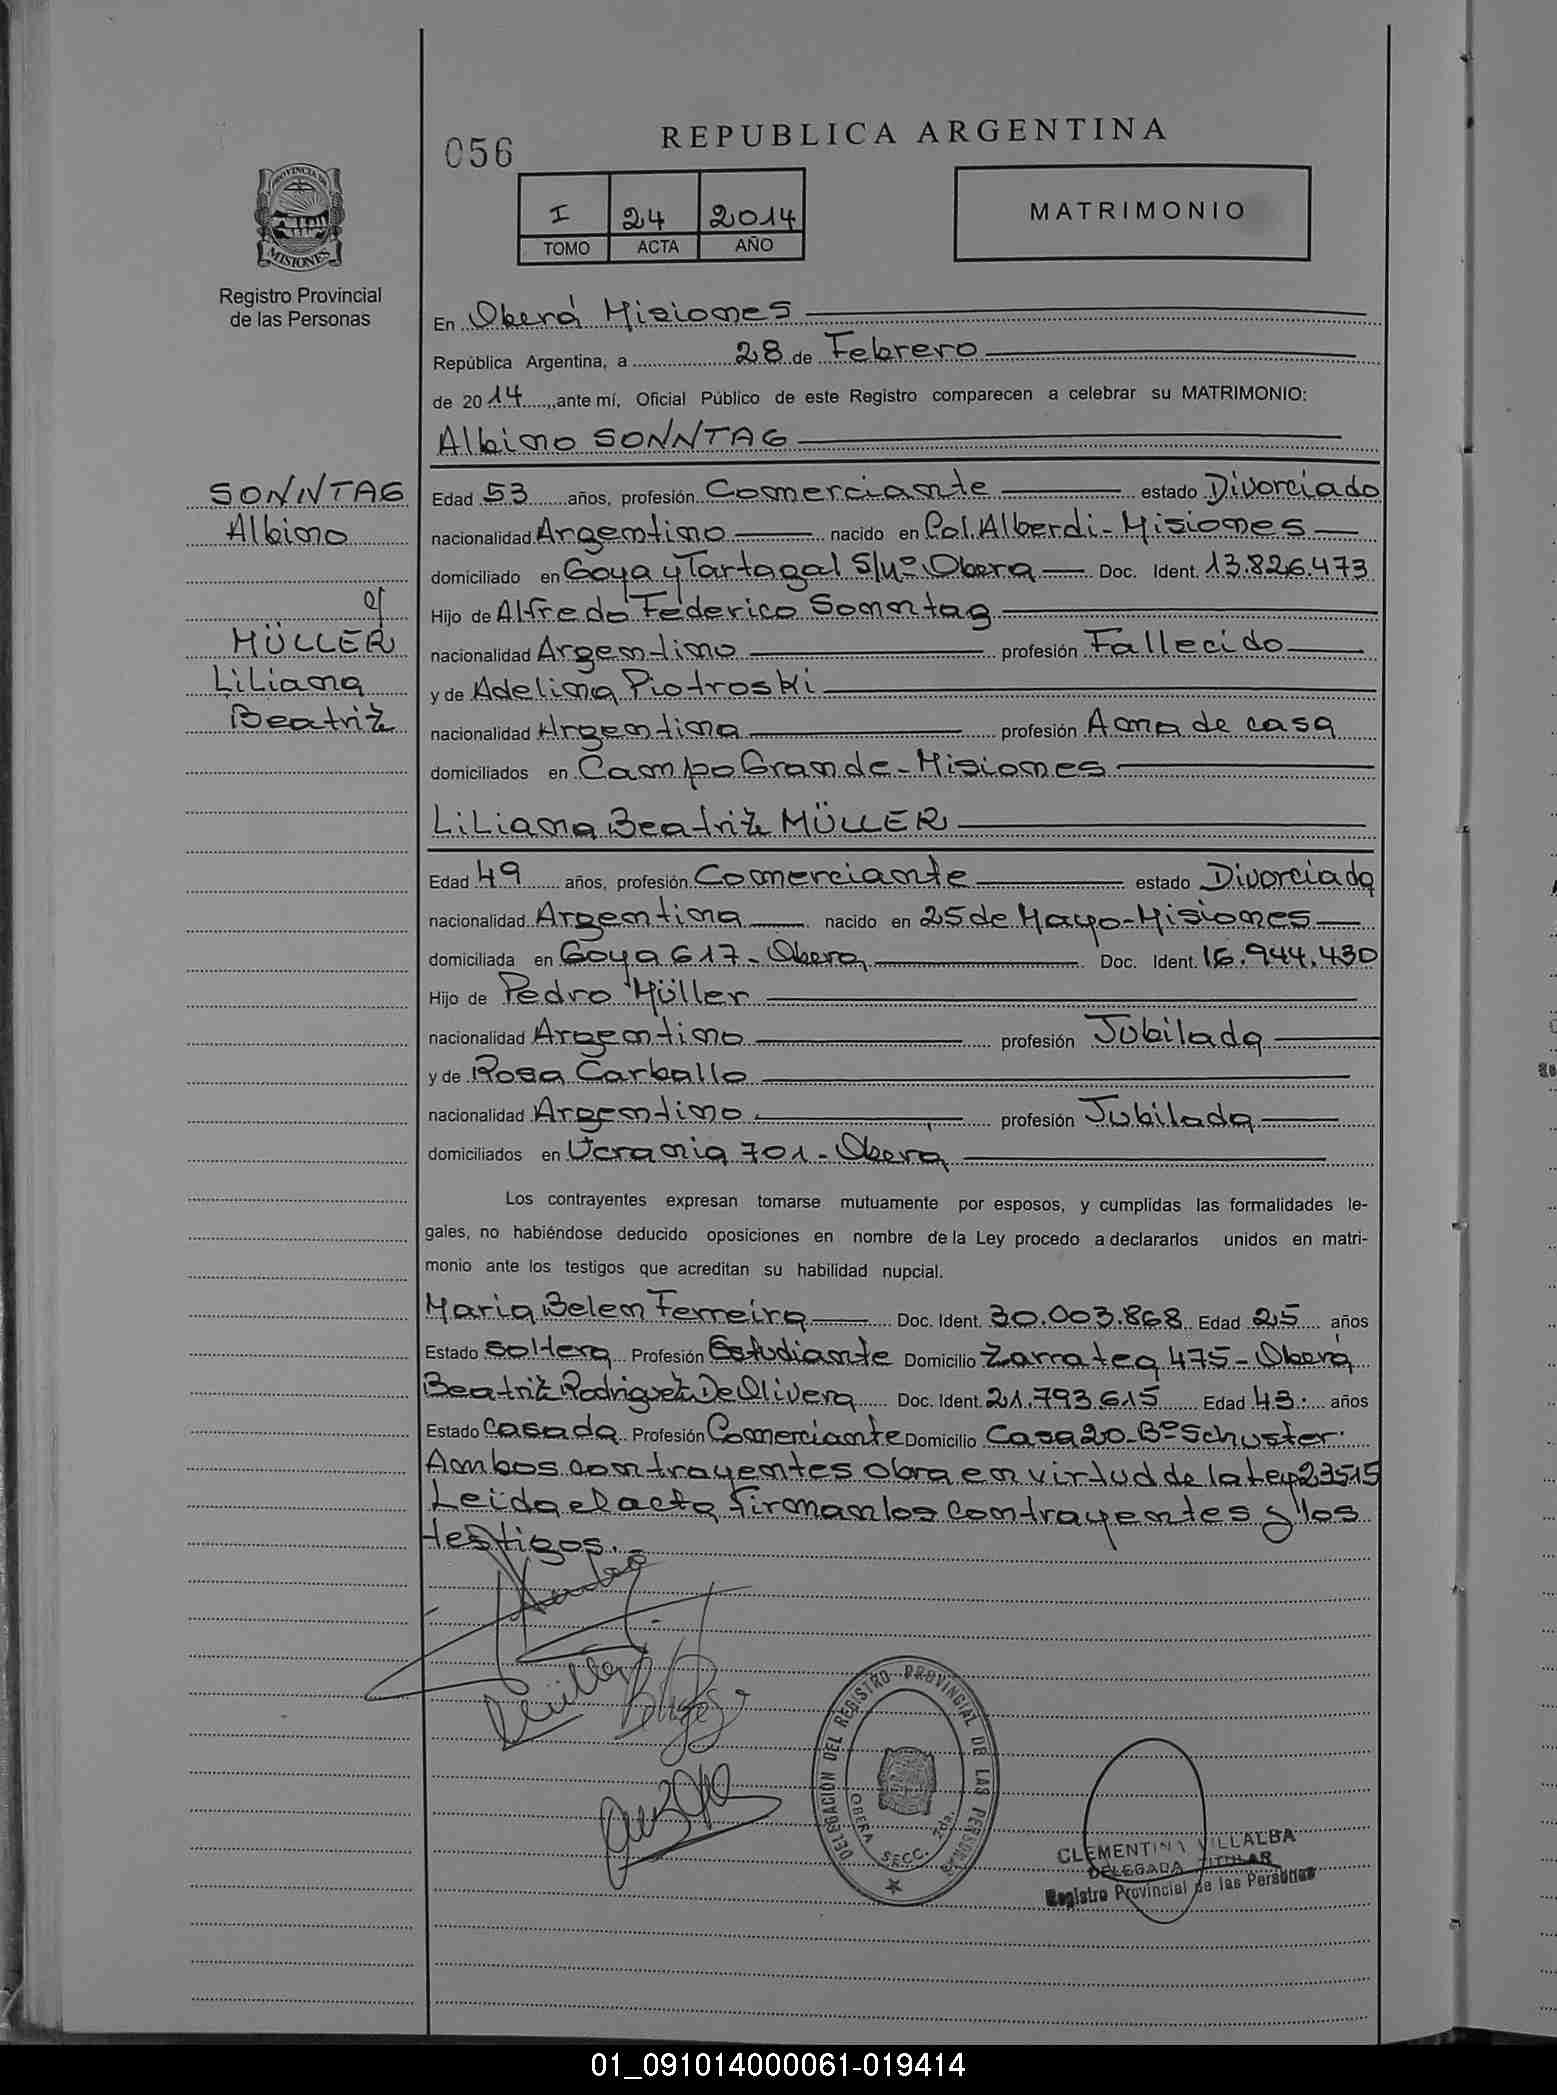 056
REPUBLICA ARGENTINA
I 24 2014
TOMO ACTA AÑO
MATRIMONIO
PROVINCIA DE
MISIONES
Registro Provincial
de las Personas
En Oberá Misiones
República Argentina, a 28 de Febrero
de 20 14 ,,ante mí, Oficial Público de este Registro comparecen a celebrar su MATRIMONIO:
Albino SONNTAG
SONNTAG
Albino
MÜLLER
Liliana
Beatriz
Edad 53 años, profesión Comerciante estado Divorciado
nacionalidad Argentino nacido en Col. Alberdi - Misiones
domiciliado en Goya y Tartagal S/Nº Obera Doc. Ident. 13.826.473
Hijo de Alfredo Federico Sonntag
nacionalidad Argentino profesión Fallecido
y de Adelina Piotroski
nacionalidad Argentina profesión Ama de casa
domiciliados en Campo Grande - Misiones
Liliana Beatriz MÜLLER
Edad 49 años, profesión Comerciante estado Divorciada
nacionalidad Argentina nacido en 25 de Mayo - Misiones
domiciliada en Goya 617 - Obera Doc. Ident. 16.944.430
Hijo de Pedro Müller
nacionalidad Argentino profesión Jubilada
y de Rosa Carballo
nacionalidad Argentino profesión Jubilada
domiciliados en Ucrania 701 - Oberá
Los contrayentes expresan tomarse mutuamente por esposos, y cumplidas las formalidades le-
gales, no habiéndose deducido oposiciones en nombre de la Ley procedo a declararlos unidos en matri-
monio ante los testigos que acreditan su habilidad nupcial.
Maria Belen Ferreira Doc. Ident. 30.003.868 Edad 25 años
Estado Soltera Profesión Estudiante Domicilio Zarratea 475 - Oberá
Beatriz Rodriguez De Olivera Doc. Ident. 21.793.615 Edad 43 años
Estado Casada Profesión Comerciante Domicilio Casa 20 - Bº Schuster
Ambos contrayentes obra en virtud de la Ley 23515
Leida el acta firman los contrayentes y los
testigos.
DELEGACIÓN DEL REGISTRO PROVINCIAL DE LAS PERSONAS
OBERA SECC. 2da.
CLEMENTINA VILLALBA
DELEGADA TITULAR
Registro Provincial de las Personas
01_091014000061-019414